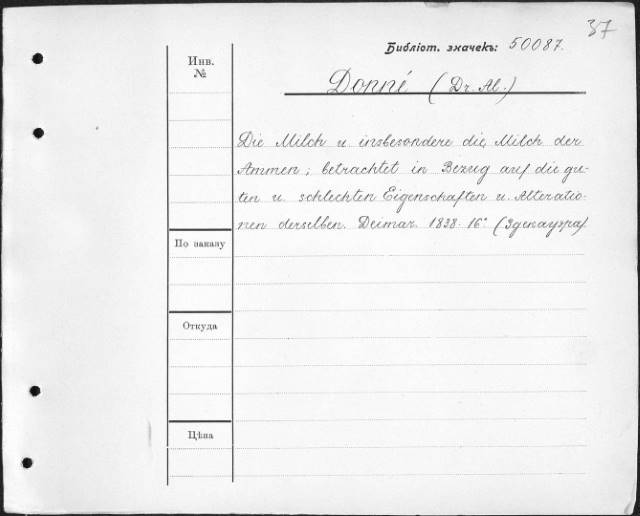 37
Библіот. значекъ: 50087.
Инв.
№
Donné (Dr. Al.)
Die Milch u. insbesondere die Milch der
Ammen; betrachtet in Bezug auf die gu-
ten u. schlechten Eigenschaften u. Alteratio-
nen derselben. Deimar. 1838. 16° (Здекауэра)
По заказу
Откуда
Цѣна